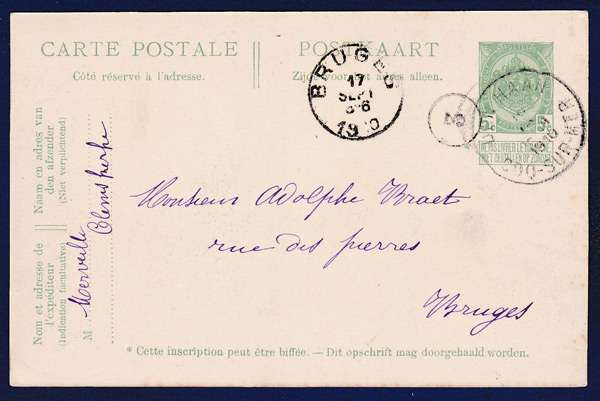 CARTE POSTALE
Côté réservé à l'adresse.
POSTKAART
Zijde voor het adres alleen.
BRUGES
17
SEPT
1910
HAAN
COQ-SUR-MER
5c 5c
NE PAS LIVRER LE DIMANCHE
NIET BESTELLEN OP ZONDAG
Naam en adres van
den afzender
(Niet verplichtend)
Nom et adresse de
l'expéditeur
(Indication facultative)
M Merveille
Clemskerke
Monsieur Adolphe Braet
rue des pierres
Bruges
* Cette inscription peut être biffée. — Dit opschrift mag doorgehaald worden.